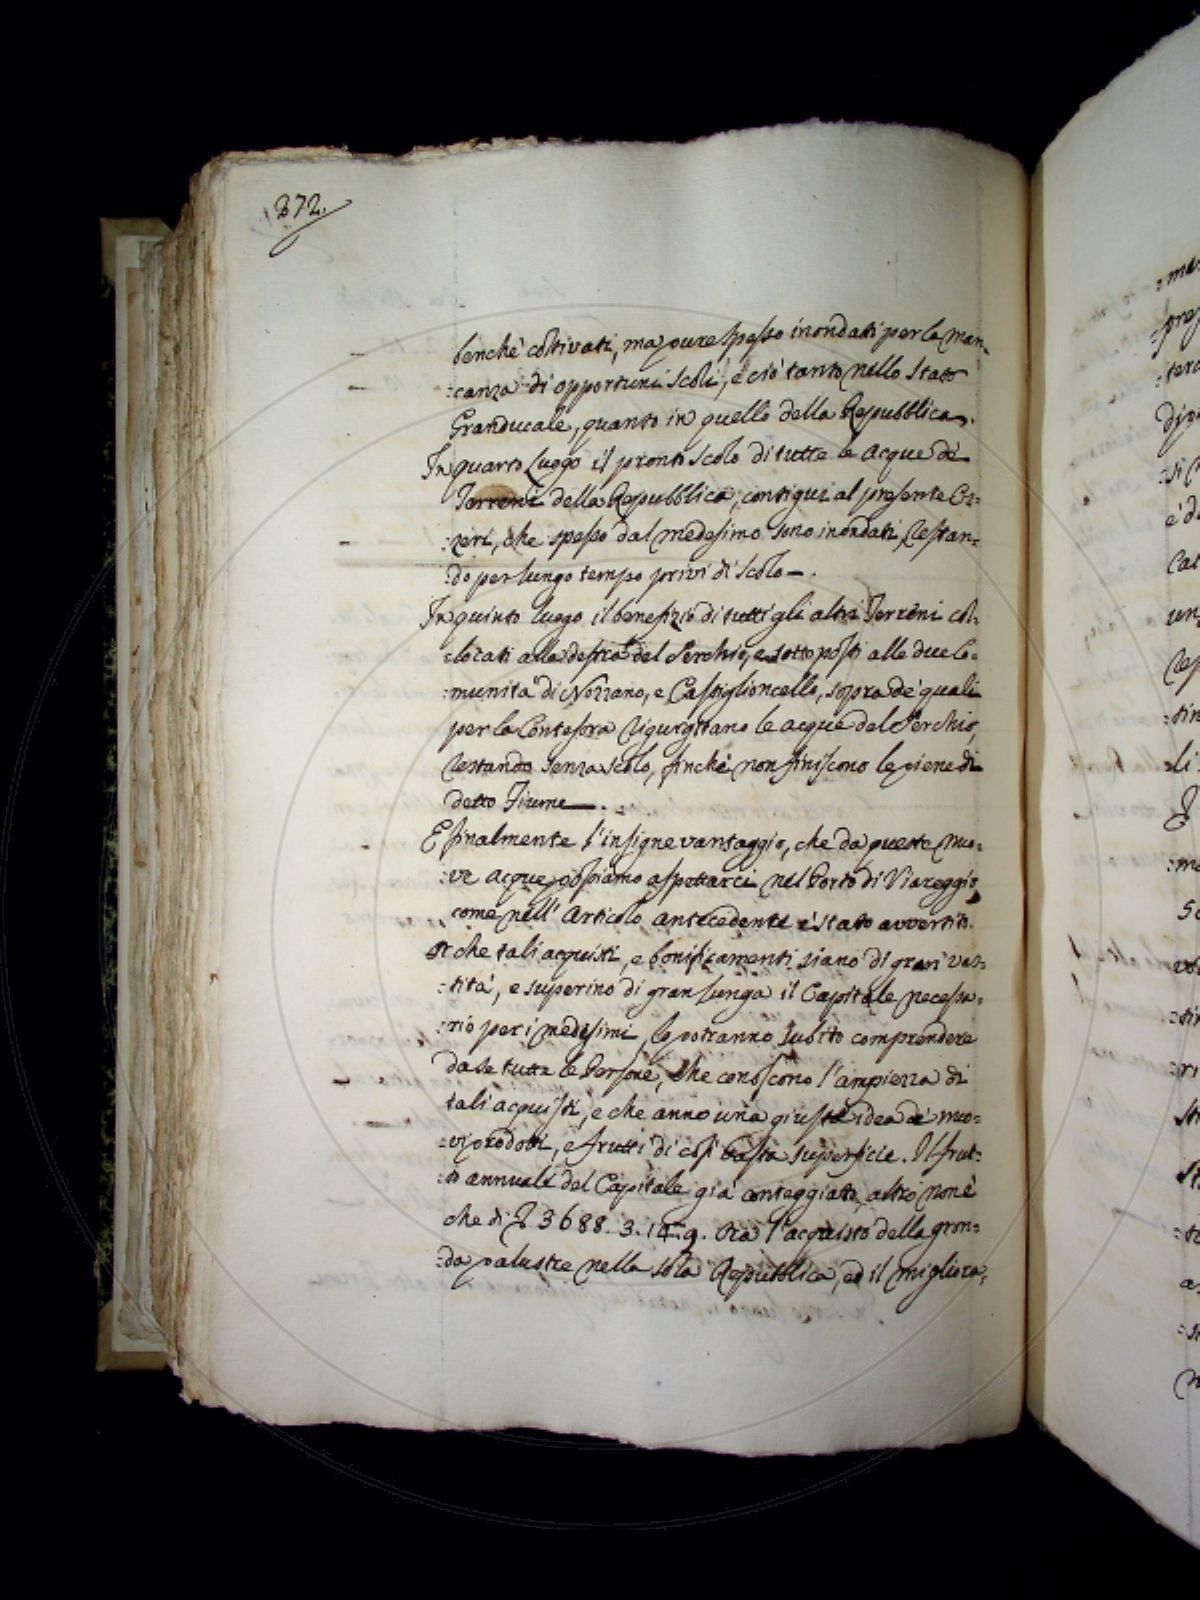 272.
benchè coltivati, ma pure spesso inondati per la man-
:canza di opportuni scoli, e ciò tanto nello Stato
Granducale, quanto in quello della Repubblica.
In quarto luogo il pronto scolo di tutte le acque de
Terreni della Repubblica, contigui al presente Oz-
:zeri, che spesso dal medesimo sono inondati, restan-
:do per lungo tempo privi di scolo.
In quinto luogo il benefizio di tutti gli altri Terreni col-
:locati alla destra del Serchio, e sottoposti alle due Co-
:munità di Nozzano, e Castiglioncello, sopra de' quali
per la Contesora rigurgitano le acque del Serchio,
restando senza scolo, finchè non finiscono le piene di
detto Fiume.
E finalmente l'insigne vantaggio, che da queste nuo-
:ve acque possiamo aspettarci nel Porto di Viareggio,
come nell' Articolo antecedente è stato avvertito.
Or che tali acquisti, e bonificamenti siano di gran vas-
:tità, e superino di gran lunga il Capitale necessa-
:rio per i medesimi, lo potranno subito comprendere
da se tutte le Persone, che conoscono l'ampiezza di
tali acquisti, e che anno una giusta idea de' nuo-
:vi prodotti, e frutti di così vasta superficie. Il frut-
:to annuale del Capitale già conteggiato, altro non è
che di 3688. 3. 14. 9. Ora l'acquisto della gron-
:da palustre nella sola Repubblica, ed il migliora-